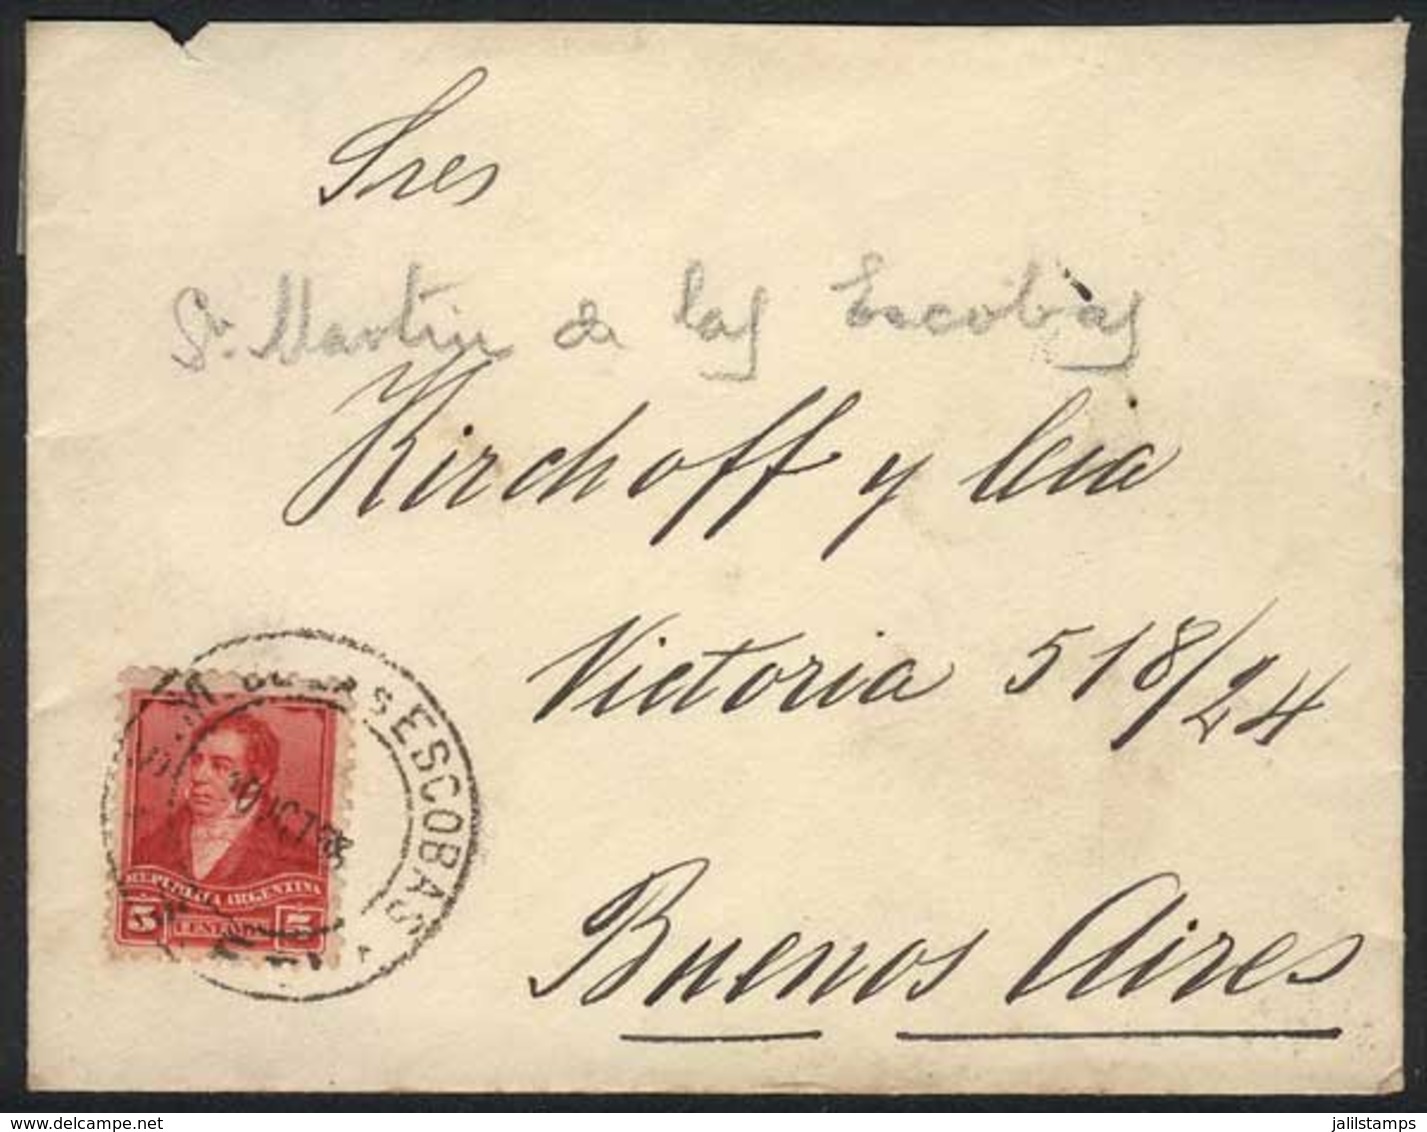 Sres
Sn. Martin de las Escobas
Kirchoff y Cia
Victoria 518/24
Buenos Aires
LAS ESCOBAS
10 OCT 98
REPUBLICA ARGENTINA
5 CENTAVOS 5
www.delcampe.net
jalilstamps